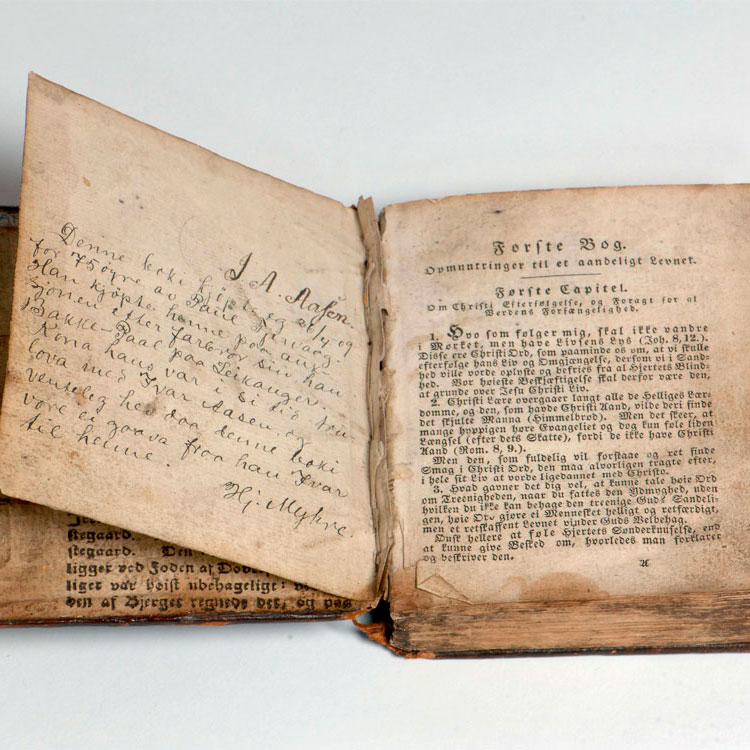 I A. Aasen.
Denne boki kjøpte eg 29/4 09
for 75 øyre av Paul
Han kjøpte henne paa auk-
sjonen etter farbror sin han
Bakke-Paal paa Leikanger.
Kona hans var i si tid tru-
lova med Ivar Aasen, og
venteleg hev daa denne boki
vore ei gaava fraa han Ivar
til henne
Hj. Myhre
stegaard.
stegaard. Den
ligger ved Foden af Dovre
liget var høist ubehageligt:
den af Bjerget regnede det, og paa
Første Bog.
Opmuntringer til et aandeligt Levnet.
Første Capitel.
Om Christi Efterfølgelse, og Foragt for al
Verdens Forfængelighed.
1. Hvo som følger mig, skal ikke vandre
i Mørket, men have Livsens Lys (Joh. 8, 12.).
Disse ere Christi Ord, som paaminde os om, at vi skulle
efterfølge hans Liv og Omgjængelse, dersom vi i Sand-
hed ville vorde oplyste og befries fra al Hjertets Blind-
hed. Vor høieste Beskjæftigelse skal derfor være den,
at grunde over Jesu Christi Liv.
2. Christi Lære overgaaer langt alle de Helliges Lær-
domme, og den, som havde Christi Aand, vilde deri finde
det skjulte Manna (Himmelbrød). Men det skeer, at
mange hyppigen høre Evangeliet og dog kun føle liden
Længsel (efter dets Skatte), fordi de ikke have Christi
Aand (Rom. 8, 9.).
Men den, som fuldelig vil forstaae og ret finde
Smag i Christi Ord, den maa alvorligen tragte efter,
i hele sit Liv at vorde ligedannet med Christo.
3. Hvad gavner det dig vel, at kunne tale høie Ord
om Treenigheden, naar du fattes den Ydmyghed, uden
hvilken du ikke kan behage den treenige Gud? Sandeli-
gen, høie Ord gjøre ei Mennesket helligt og retfærdigt,
men et retskaffent Levnet vinder Guds Velbehag.
Ønsk hellere at føle Hjertets Sønderknuselse, end
at kunne give Besked om, hvorledes man forklarer
og beskriver den.
A